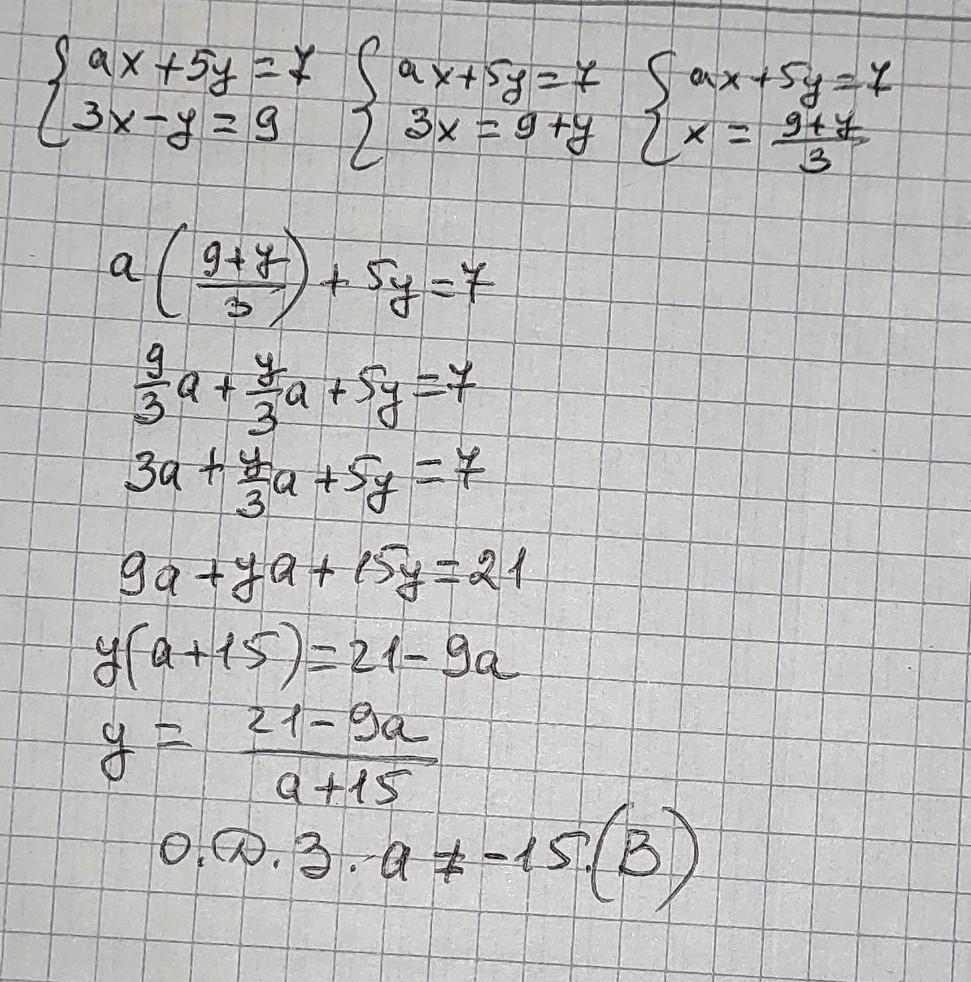 {ax+5y=7 {ax+5y=7 {ax+5y=7
{3x-y=9 {3x=9+y {x=(9+y)/3
a((9+y)/3)+5y=7
9/3a+y/3a+5y=7
3a+y/3a+5y=7
9a+ya+15y=21
y(a+15)=21-9a
y=(21-9a)/(a+15)
О.Д.З. a≠-15.(В)